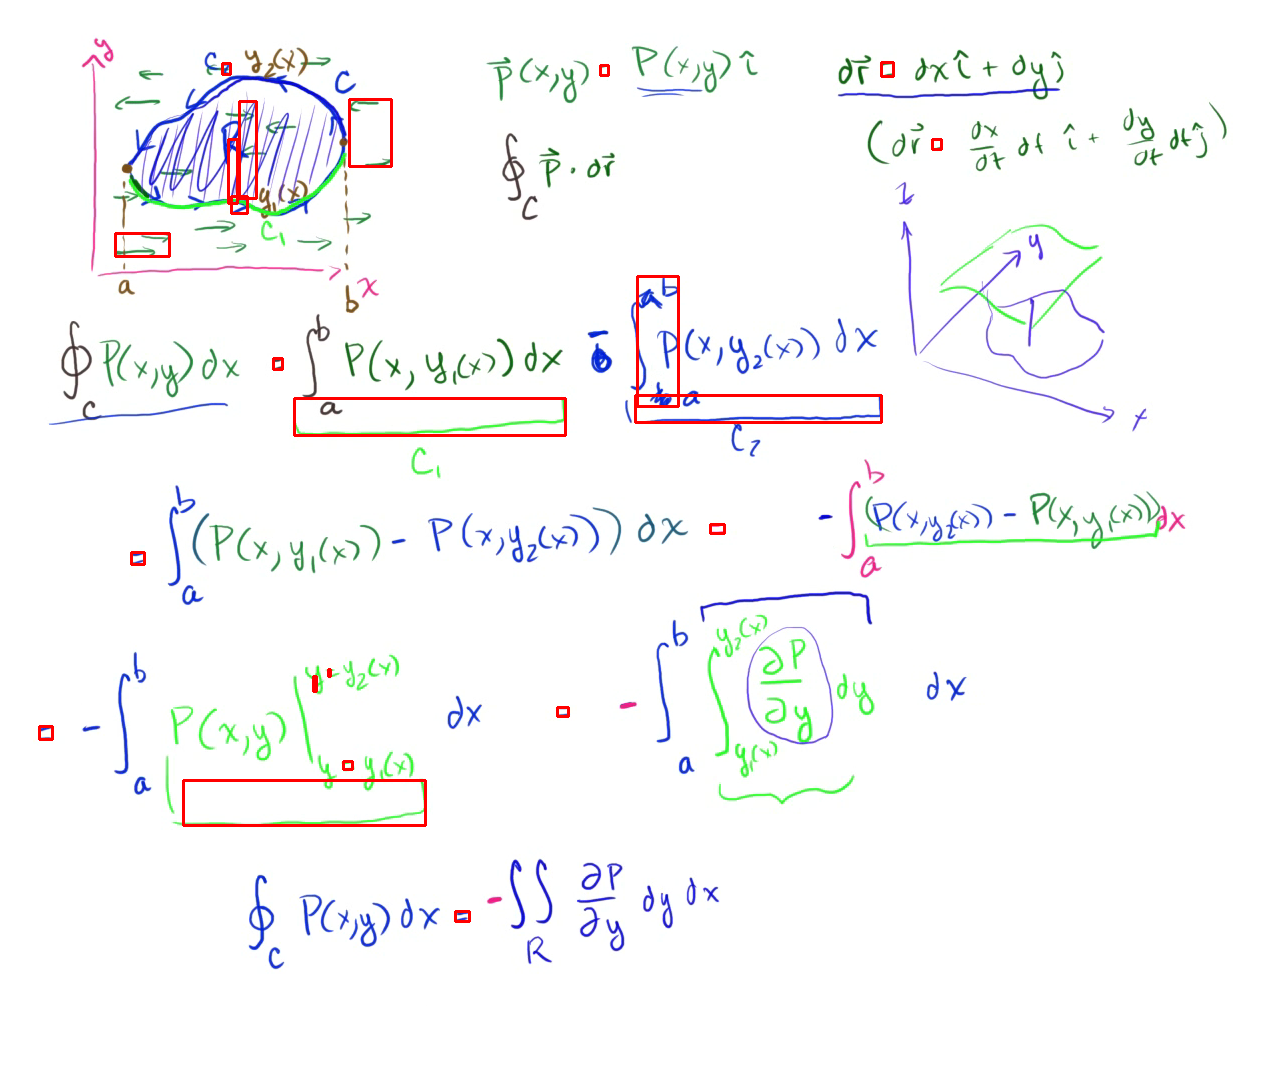 y
C₂ y₂(x)
C
R
y₁(x)
C₁
a b x
P⃗(x,y) = P(x,y) î
dr⃗ = dx î + dy ĵ
∮_C P⃗ · dr⃗
(dr⃗ = dx/dt dt î + dy/dt dt ĵ)
z
y
x
∮_C P(x,y) dx = ∫_a^b P(x, y₁(x)) dx - ∫_a^b P(x, y₂(x)) dx
C₁ C₂
= ∫_a^b (P(x, y₁(x)) - P(x, y₂(x))) dx = - ∫_a^b (P(x, y₂(x)) - P(x, y₁(x))) dx
= - ∫_a^b P(x,y) |_{y = y₁(x)}^{y = y₂(x)} dx = - ∫_a^b ∫_{y₁(x)}^{y₂(x)} ∂P/∂y dy dx
∮_C P(x,y) dx = - ∬_R ∂P/∂y dy dx